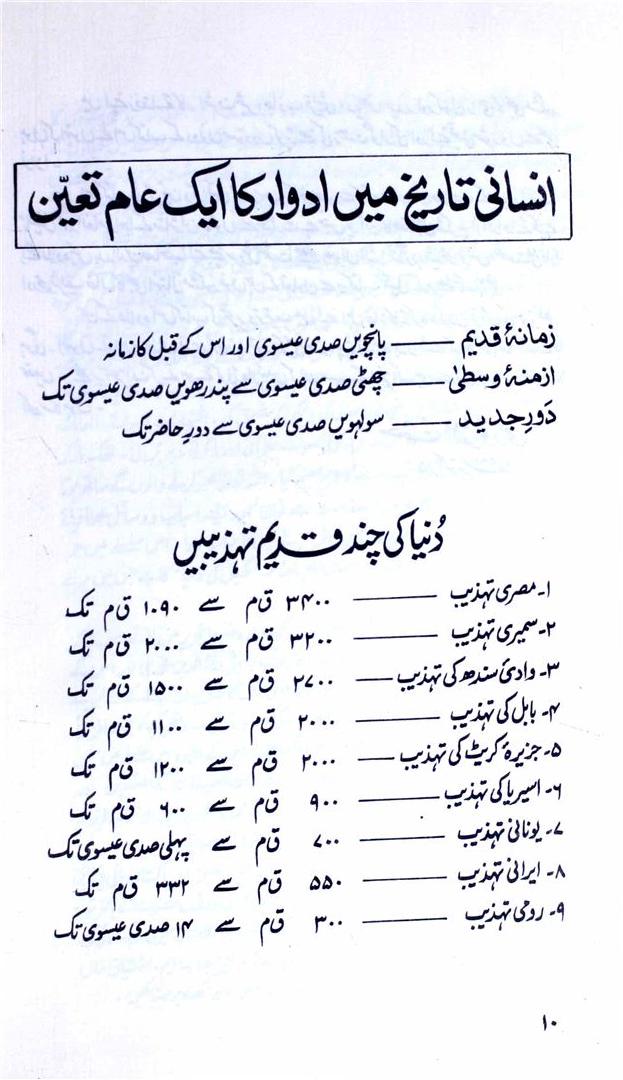 انسانی تاریخ میں ادوار کا ایک عام تعیّن
زمانۂ قدیم ——— پانچویں صدی عیسوی اور اس کے قبل کا زمانہ
ازمنۂ وسطیٰ ——— چھٹی صدی عیسوی سے پندرھویں صدی عیسوی تک
دَورِ جدید ——— سولہویں صدی عیسوی سے دورِ حاضر تک
دُنیا کی چند قدیم تہذیبیں
۱۔ مصری تہذیب ——— ۳۴۰۰ ق م سے ۱۰۹۰ ق م تک
۲۔ سمیری تہذیب ——— ۳۲۰۰ ق م سے ۲۰۰۰ ق م تک
۳۔ وادیٔ سندھ کی تہذیب ——— ۲۷۰۰ ق م سے ۱۵۰۰ ق م تک
۴۔ بابل کی تہذیب ——— ۲۰۰۰ ق م سے ۱۱۰۰ ق م تک
۵۔ جزیرۂ کریٹ کی تہذیب ——— ۲۰۰۰ ق م سے ۱۲۰۰ ق م تک
۶۔ اسیریا کی تہذیب ——— ۹۰۰ ق م سے ۶۰۰ ق م تک
۷۔ یونانی تہذیب ——— ۷۰۰ ق م سے پہلی صدی عیسوی تک
۸۔ ایرانی تہذیب ——— ۵۵۰ ق م سے ۳۳۲ ق م تک
۹۔ رومی تہذیب ——— ۳۰۰ ق م سے ۱۴ صدی عیسوی تک
۱۰